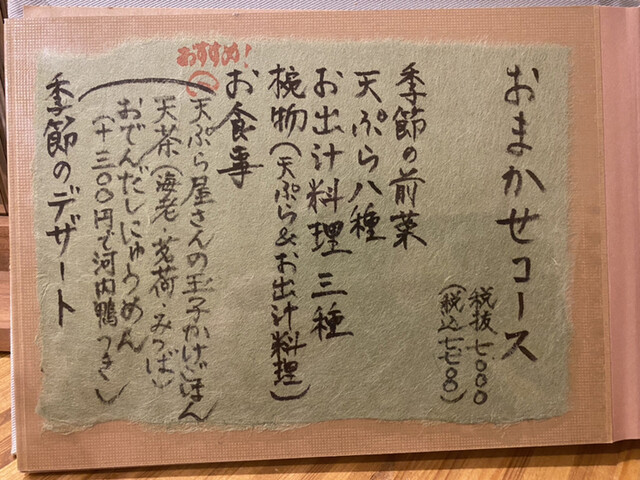 おまかせコース
税抜 七000
(税込 七七00)
季節の前菜
天ぷら八種
お出汁料理 三種
椀物(天ぷら&お出汁料理)
お食事
おすすめ!
天ぷら屋さんの玉子かけごはん
天茶(海老・茗荷・みつば)
おでんだしにゅうめん
(+三00円で河内鴨つき)
季節のデザート